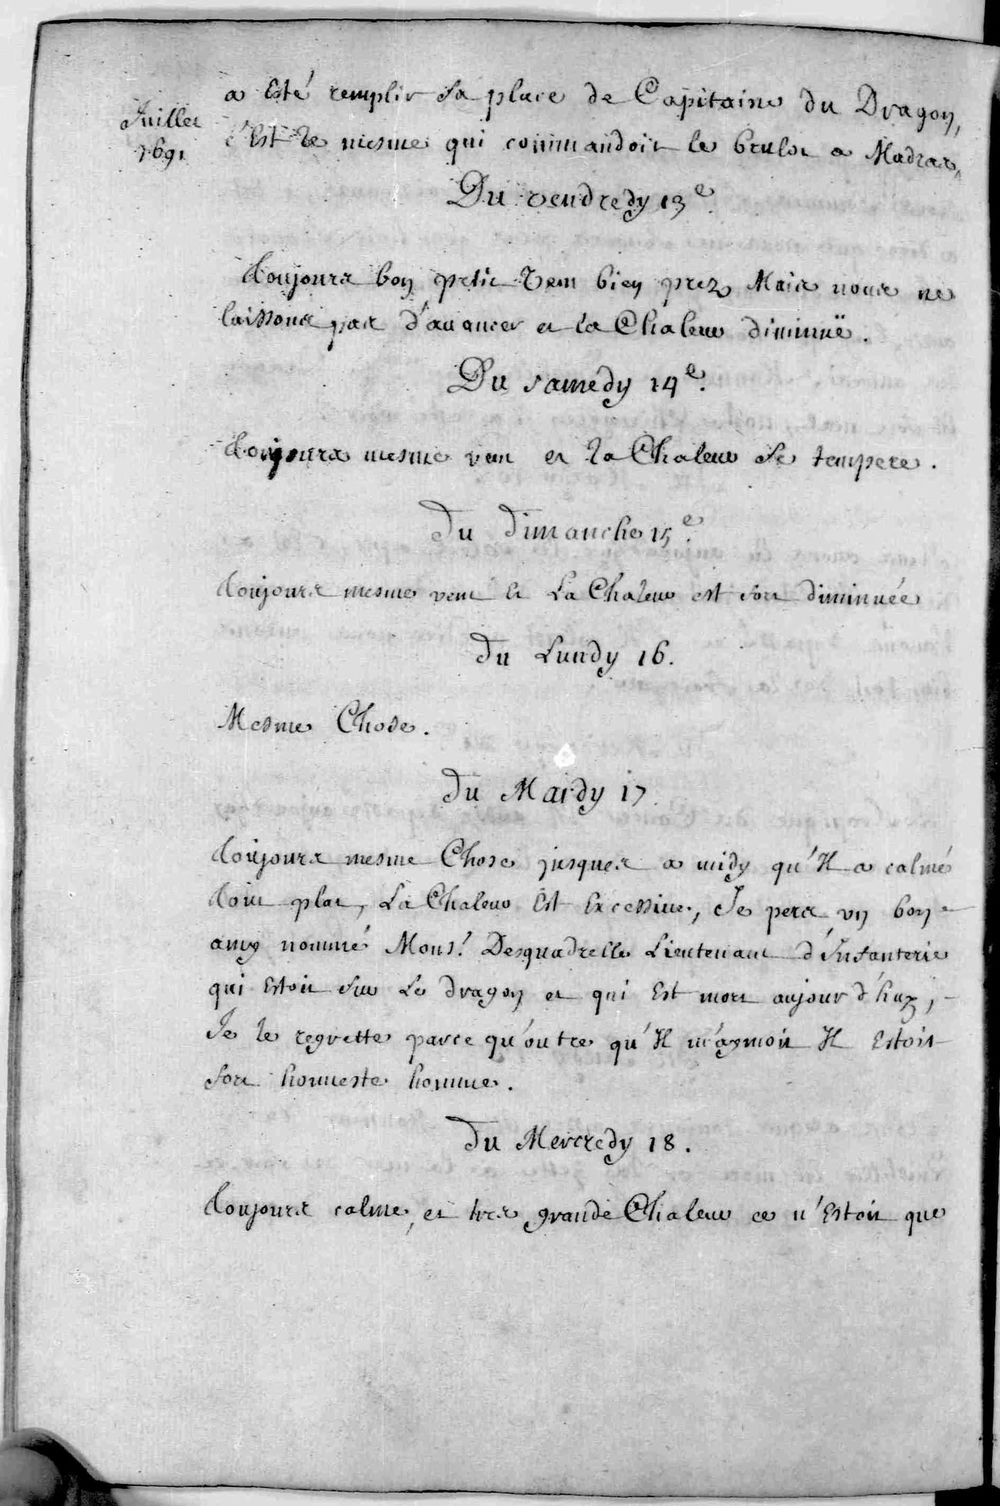 Juillet
1691
a Esté remplir sa place de Capitaine du Dragon,
c'Est le mesme qui commandoit le brulot a Madras,
Du vendredy 13e.
toujours bon petit vent bien prez Mais nous ne
laissons pas d'auancer et la Chaleur diminuë.
Du samedy 14e.
toujours mesme vent et la Chaleur se tempere.
du dimanche 15e.
toujours mesme vent et La Chaleur est fort diminuée
du Lundy 16.
Mesme Chose.
du Mardy 17
toujours mesme Chose jusques a midy qu'Il a calmé
tout plat, La Chaleur Est Excessiue, Je pers vn bon
amy nommé Mons.r Desquadrelle Lieutenant d'Infanterie
qui Estoit sur Le dragon et qui Est mort aujour d'huy,
Je le regrette parce qu'outre qu'Il m'aymoit Il Estoit
fort honneste homme.
du Mercredy 18.
toujours calme, et tres grande Chaleur ce n'Estoit que